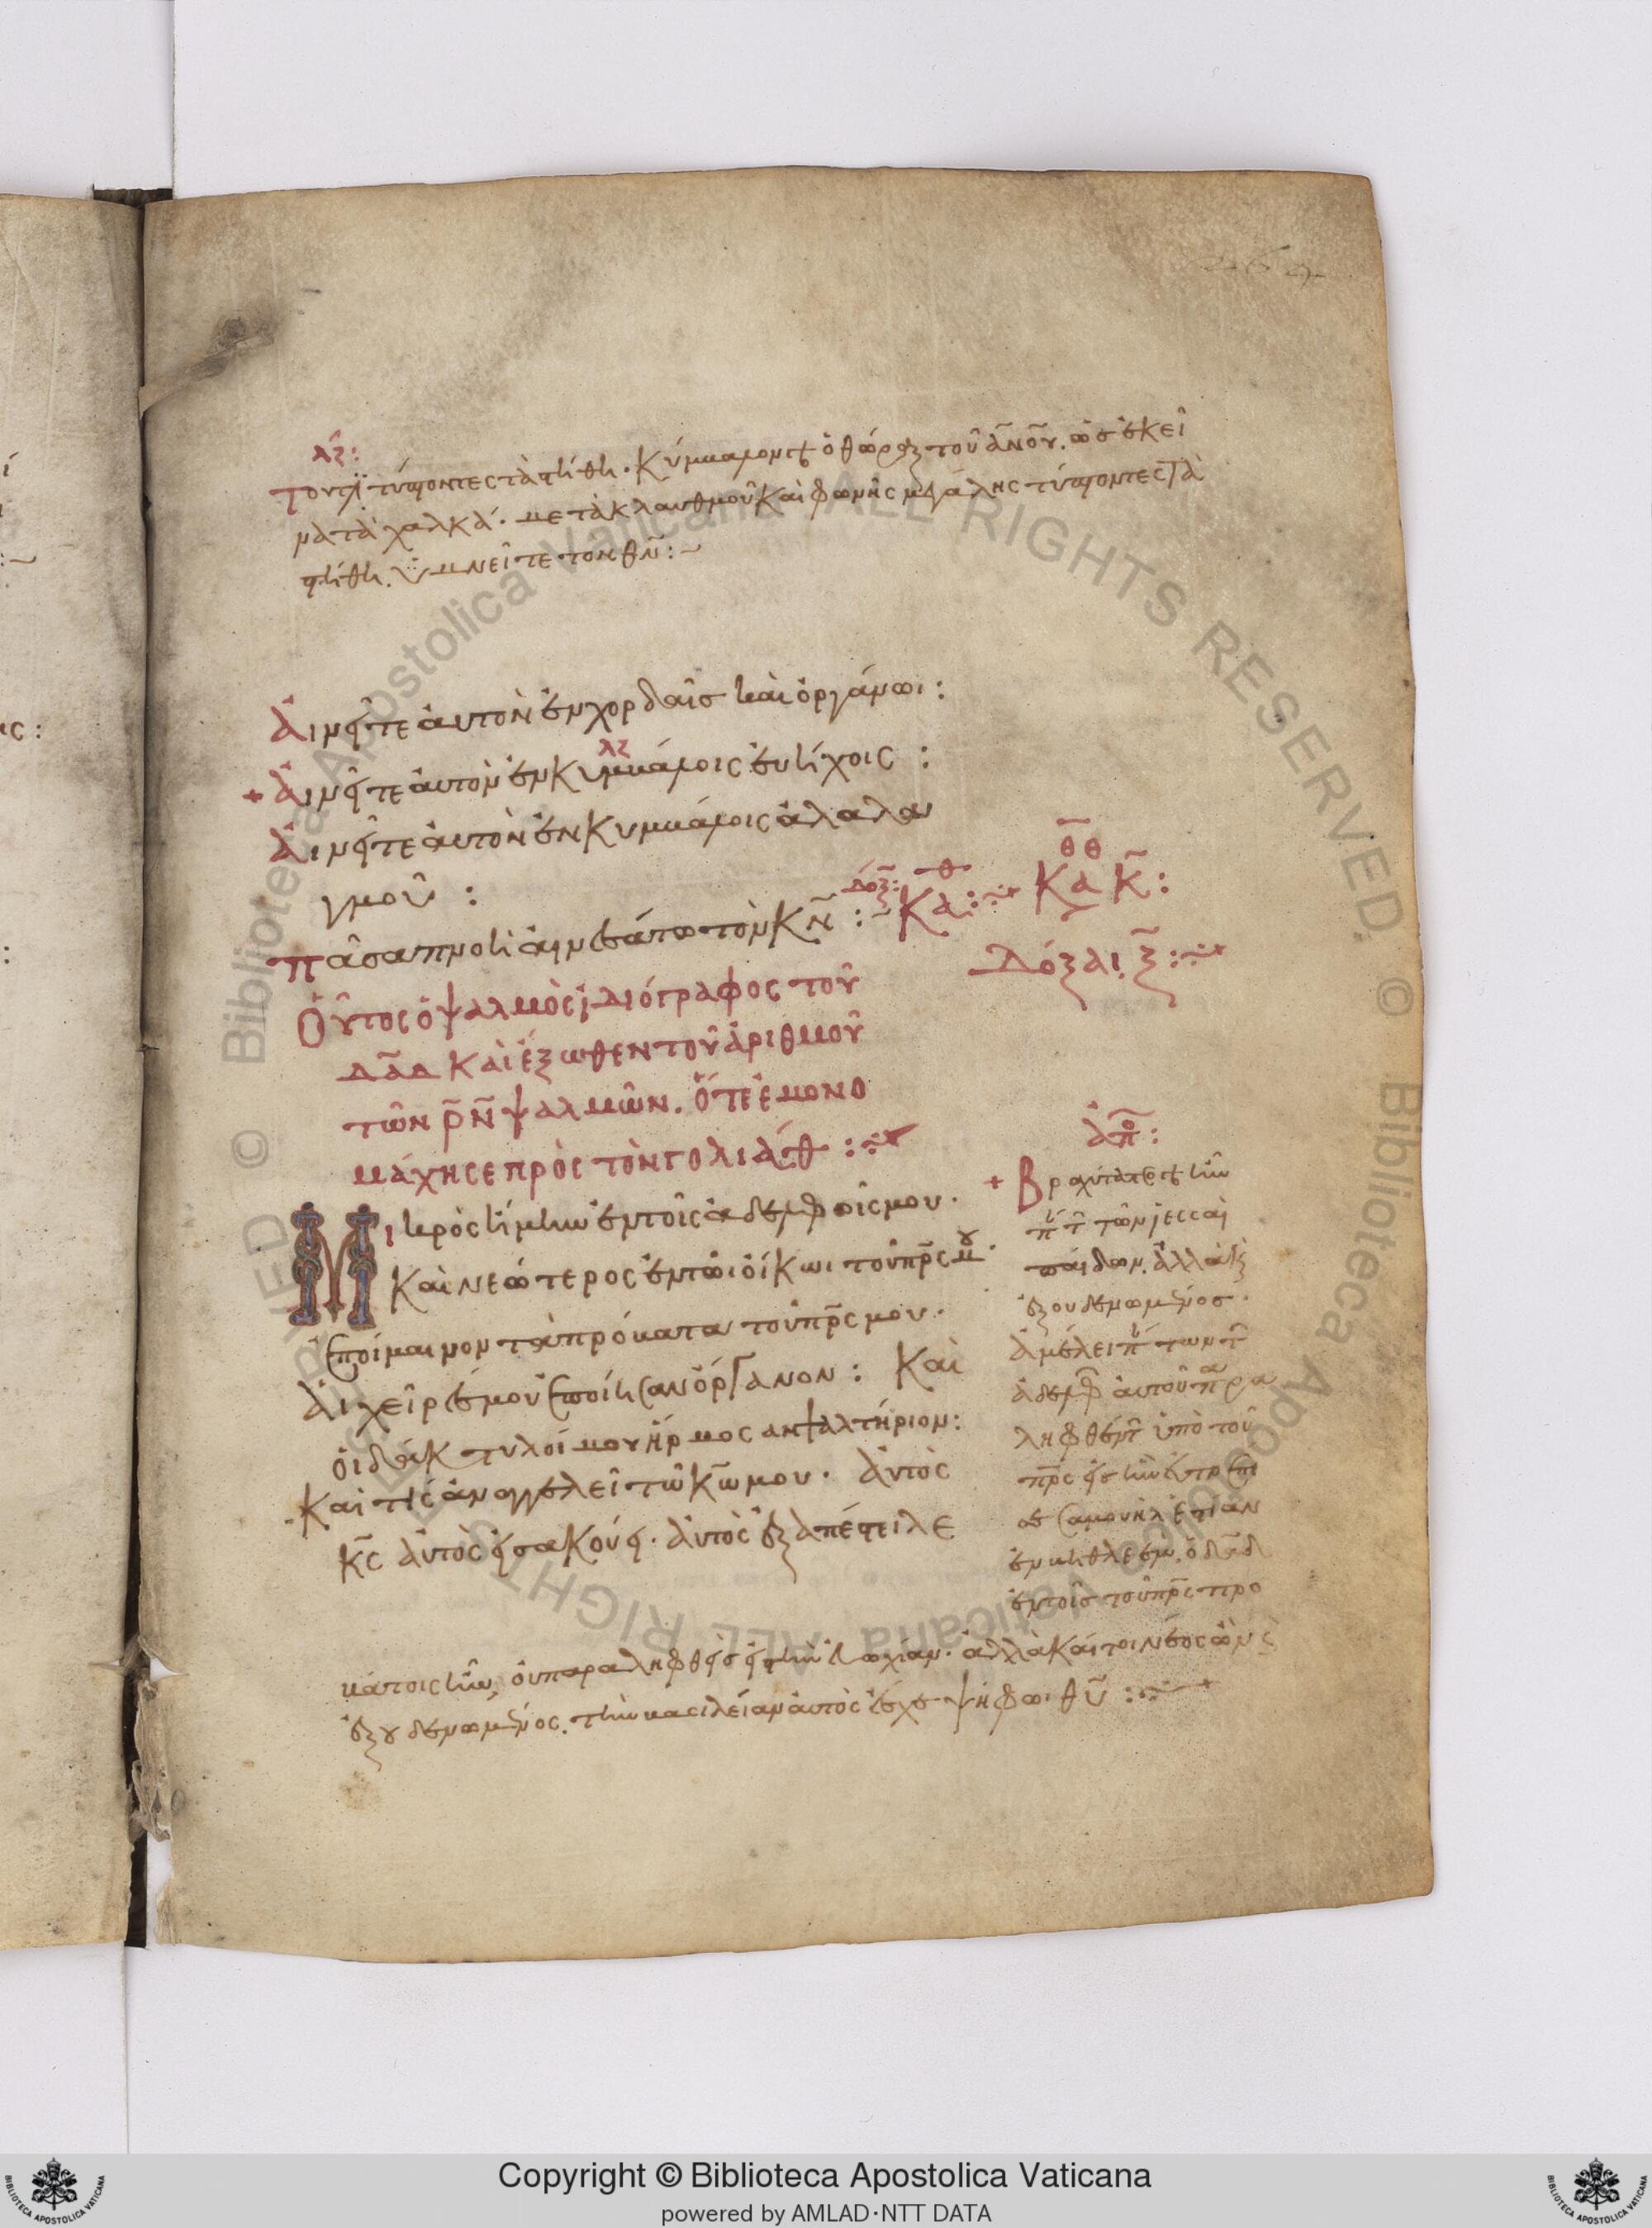 λζ:
Τουτέστι τύπτοντες τὰ στήθη. Κύμβαλον ἐστὶ ὁ θώραξ τοῦ ἀν̅ο̅υ. ὡς ἐκεῖ
να τὰ χαλκά. μετὰ κλαυθμοῦ καὶ φωνῆς μεγάλης τύπτοντες τὰ
στήθη. ὑμνεῖτε τὸν θν̅:~
Αἰνεῖτε αὐτὸν ἐν χορδαῖς καὶ ὀργάνωι:
λζ
+ Αἰνεῖτε αὐτὸν ἐν κυμβάλοις εὐήχοις :
Αἰνεῖτε αὐτὸν ἐν κυμβάλοις ἀλαλα
γμοῦ :
Πᾶσα πνοὴ αἰνεσάτω τὸν κν̅ :~ Δόξ: κθ̅α:
Κα κ̅:
Δόξαι ξ̅:
Οὗτος ὁ ψαλμὸς ἰδιόγραφος τοῦ
δα̅δ καὶ ἔξωθεν τοῦ ἀριθμοῦ
τῶν ρ̅ν̅ ψαλμῶν. ὅτε ἐμονο
μάχησε πρὸς τὸν γολιάθ :
Μικρὸς ἤμην ἐν τοῖς ἀδελφοῖς μου.
Καὶ νεώτερος ἐν τῶι οἴκωι τοῦ πρ̅ς μου.
Ἐποίμαινον τὰ πρόβατα τοῦ πρ̅ς μου.
Αἱ χεῖρές μου ἐποίησαν ὄργανον: Καὶ
οἱ δάκτυλοί μου ἥρμοσαν ψαλτήριον:
Καὶ τίς ἀναγγελεῖ τῶ κω̅ μου. Αὐτὸς
κς̅ αὐτὸς εἰσακούει. Αὐτὸς ἐξαπέστειλε
ἀπο̅:
+ Βραχύτατος ἐστὶ ἦν
τῶν ἰεσσαὶ
παίδων. ἀλλὰ καὶ
ἐξουδενωμένος.
Ἀμέλει τῶν
ἀδελφ αὐτοῦ παρα
ληφθέντ ὑπὸ τοῦ
πρ̅ς εἰς τὴν
σαμουὴλ ἑστίαν
ἐν βηθλεέμ. ὁ δα̅δ
ἐν τοῖς τοῦ πρ̅ς προ
βάτοις ἦν, οὐ παραληφθεὶς εἰς τὴν εὐωχίαν. ἀλλὰ καίτοι νέος ὢν
ἐξουδενωμένος. τὴν βασιλείαν αὐτὸς ἔσχε ψήφωι θυ̅ :
Copyright © Biblioteca Apostolica Vaticana
powered by AMLAD·NTT DATA